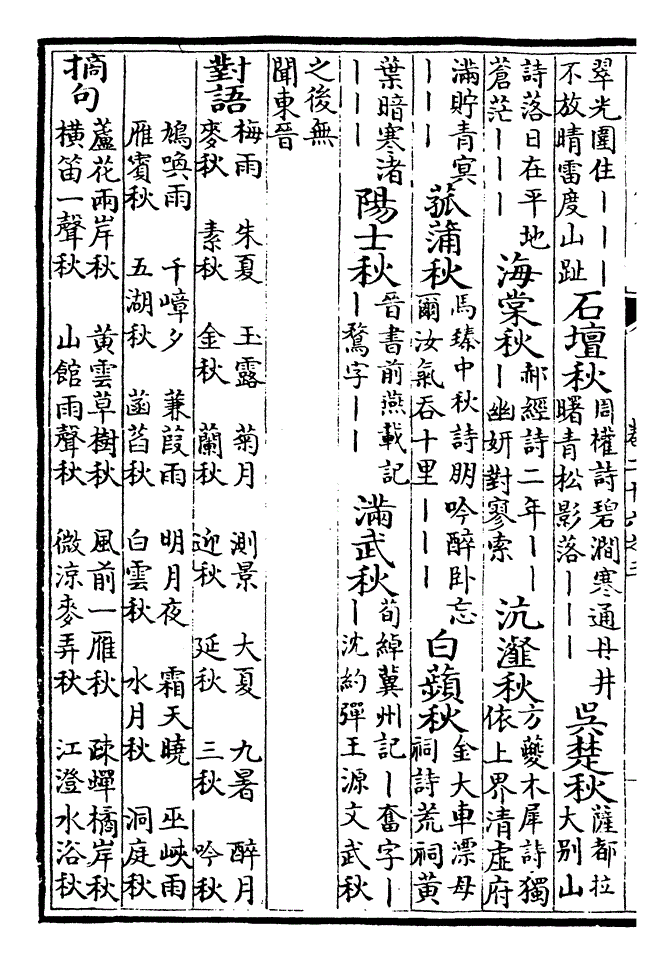 翠光圍住｜｜｜
不放晴雷度山趾
石壇秋
周權詩碧澗寒通丹井
曙青松影落｜｜｜
吳楚秋
薩都拉
大别山
詩落日在平地
蒼茫｜｜｜
海棠秋
郝經詩二年｜｜
｜幽妍對寥索
沆瀣秋
方夔木犀詩獨
依上界清虛府
滿貯青冥
｜｜｜
菰蒲秋
馬臻中秋詩朋吟醉卧忘
爾汝氣吞十里｜｜｜
白蘋秋
金大車漂母
祠詩荒祠黄
葉暗寒渚
｜｜｜
陽士秋
晉書前燕載記
｜騖字｜｜
滿武秋
荀綽冀州記｜奮字｜
｜沈約彈王源文武秋
之後無
聞東晉
對語
梅雨 朱夏 玉露 菊月 測景 大夏 九暑 醉月
麥秋 素秋 金秋 蘭秋 迎秋 延秋 三秋 吟秋
鳩喚雨 千嶂夕 蒹葭雨 明月夜 霜天曉 巫峽雨
雁賓秋 五湖秋 菡萏秋 白雲秋 水月秋 洞庭秋
摘句
蘆花兩岸秋 黄雲草樹秋 風前一雁秋 疎蟬橘岸秋
橫笛一聲秋 山館雨聲秋 微涼麥弄秋 江澄水浴秋